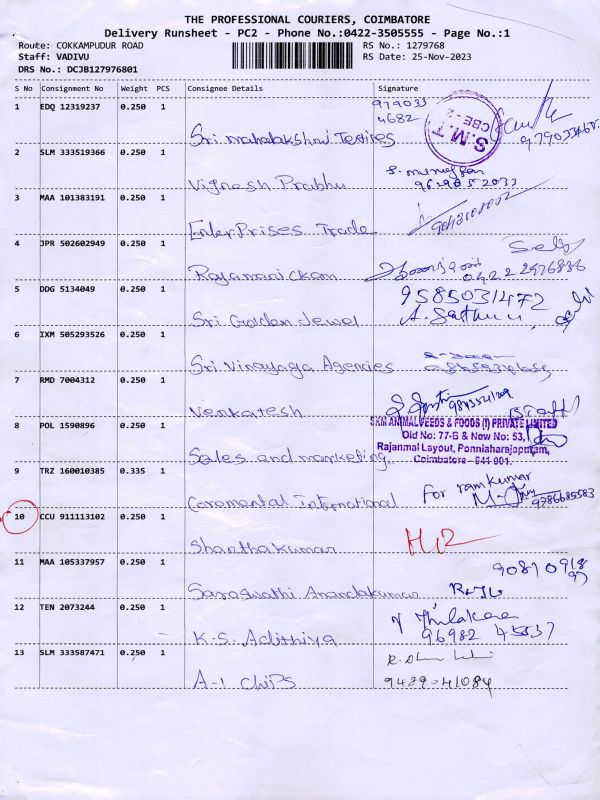 THE PROFESSIONAL COURIERS, COIMBATORE
Delivery Runsheet - PC2 - Phone No.:0422-3505555 - Page No.:1
Route: COKKAMPUDUR ROAD
RS No.: 1279768
Staff: VADIVU
RS Date: 25-Nov-2023
DRS No.: DCJB127976801
S No Consignment No Weight PCS Consignee Details Signature
1 EDQ 12319237 0.250 1
979033
4682
S.M.T
CBE - 2
Sri mahalakshmi Textiles
2 SLM 333519366 0.250 1
Vignesh Prabhu
3 MAA 101383191 0.250 1
EnterPrises Trade
4 JPR 502602949 0.250 1
Rajamanickam
0422 2976836
5 DDG 5134049 0.250 1
9585031472
Sri Golden Jewel
6 IXM 505293526 0.250 1
Sri Vinayaga Agencies
7 RMD 7004312 0.250 1
Venkatesh
8 POL 1590896 0.250 1
SKM ANIMAL FEEDS & FOODS (I) PRIVATE LIMITED
Old No: 77-B & New No: 53,
Rajanmal Layout, Ponniaharajapuram,
Coimbatore - 641 001.
Sales and marketing
9 TRZ 160010385 0.335 1
For ramkumar
9786685583
International
10 CCU 911113102 0.250 1
Shanthakumar
11 MAA 105337957 0.250 1
Saraswathi Anandakumar
12 TEN 2073244 0.250 1
Thilakara
96982 45537
K.S. Adithiya
13 SLM 333587471 0.250 1
A-1 chips
9489041084